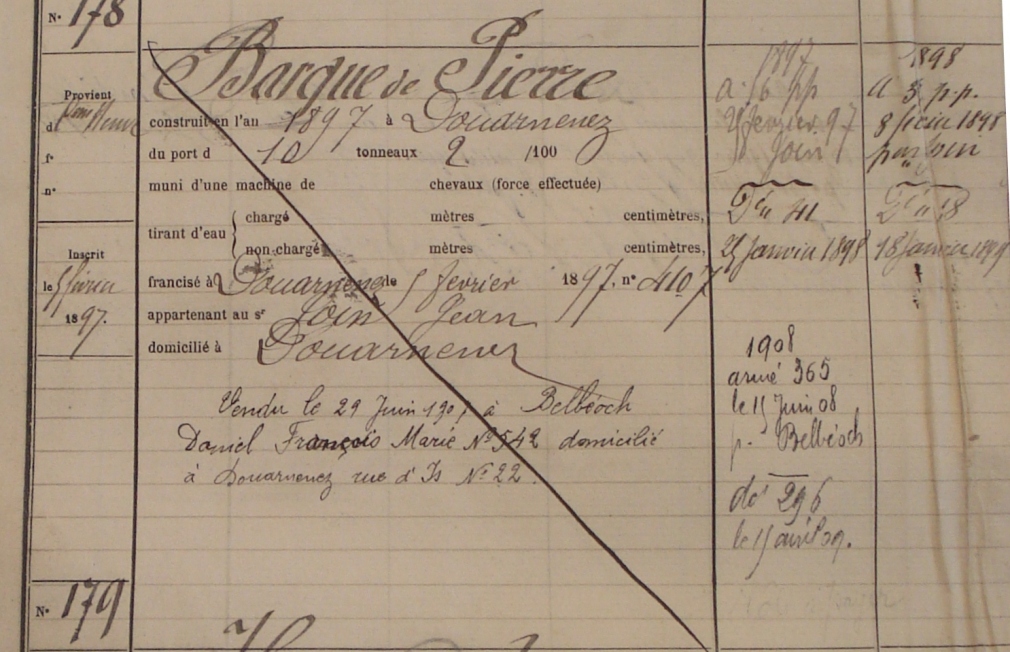 N° 178
Barque de Pierre
Provient
d
f°
n°
construit en l'an 1897 à Douarnenez
du port d 10 tonneaux 2 /100
muni d'une machine de chevaux (force effectuée)
tirant d'eau { chargé mètres centimètres,
non-chargé mètres centimètres,
francisé à Douarnenez le 5 fevrier 1897. n° 4107
appartenant au sr Join Jean
domicilié à Douarnenez
Inscrit
le 5
1897.
Vendu le 29 Juin 1907 à Belbéoch
Daniel François Marie N° 542 domicilié
à Douarnenez rue d'Is N° 22.
1897
a 56 pp
fevrier 97
Join
Dén 41
25 Janvier 1898
1908
armé 365
le 15 Juin 08
p. Belbéoch
dé 296
le 15 avril 09.
1898
a 3 p.p.
8 1898
par
18 Janvier 1899
N° 179